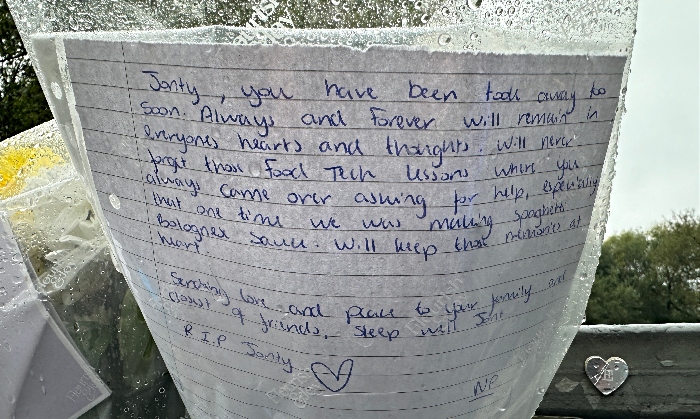 Jonty, you have been took away to
soon. Always and Forever will remain in
everyones hearts and thoughts. Will never
forget those Food Tech lessons when you
always came over asking for help, especially
that one time we was making spaghetti
Bolognese sauce. Will keep those memories at
heart
Sending love and peace to your family and
closest of friends. Sleep well Jont
R.I.P Jonty
NP